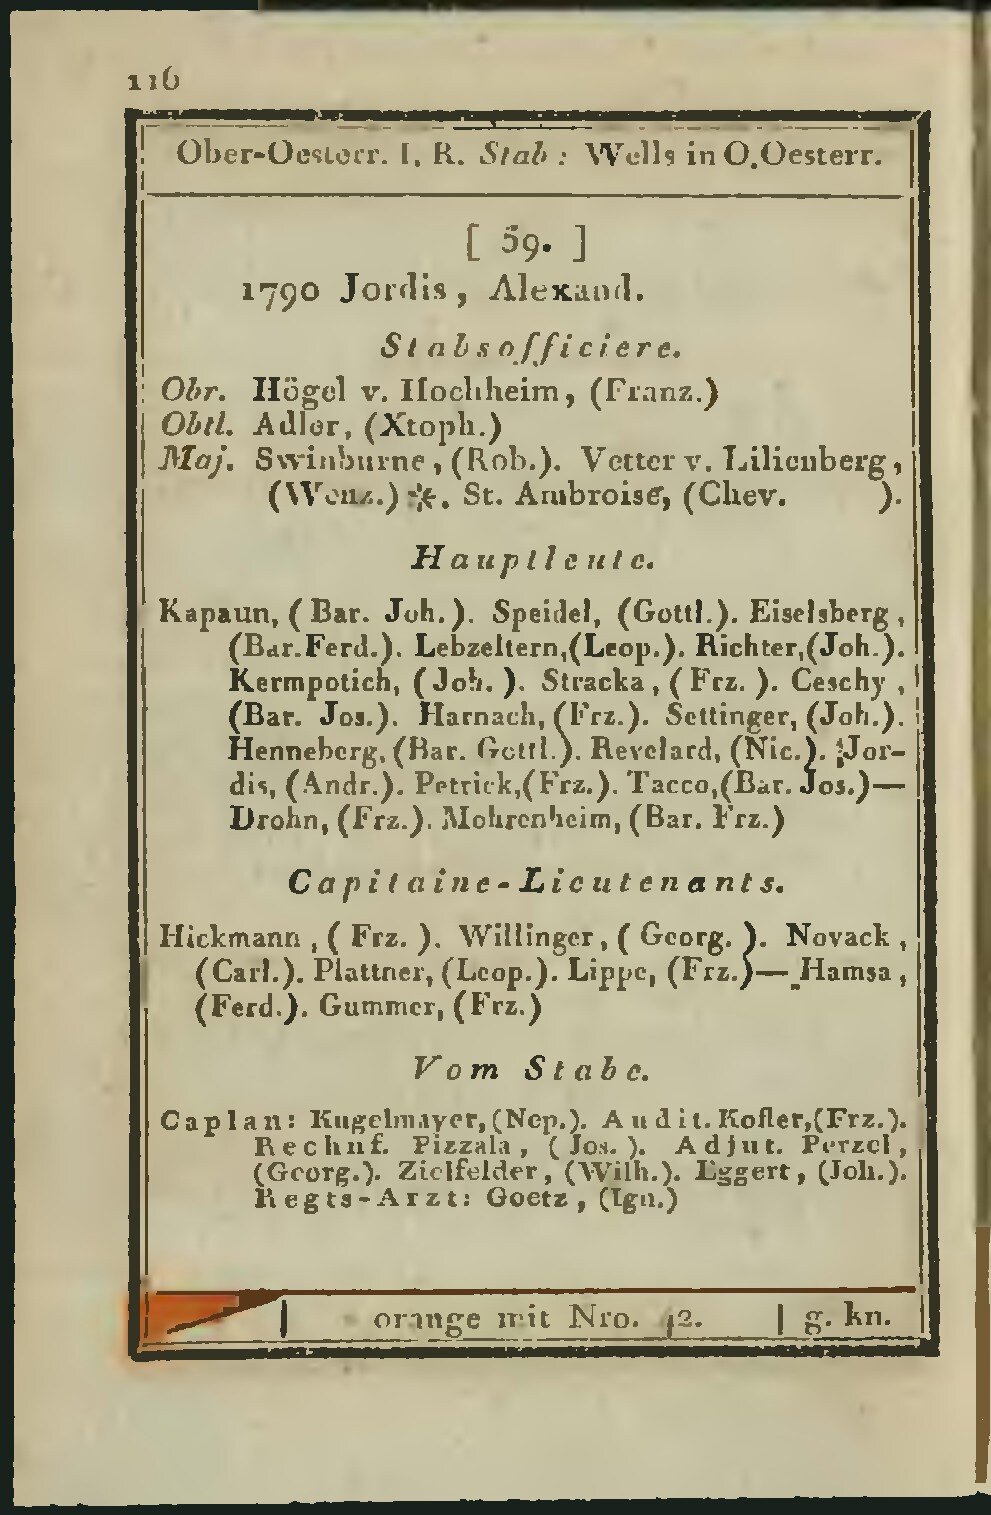 116
Ober-Oesterr. I. R. Stab: Wells in O.Oesterr.
[ 59. ]
1790 Jordis, Alexand.
Stabsofficiere.
Obr. Högel v. Hochheim, (Franz.)
Obtl. Adler, (Xtoph.)
Maj. Swinburne, (Rob.). Vetter v. Lilienberg,
(Wenz.) ✠. St. Ambroise, (Chev. ).
Hauptleute.
Kapaun, (Bar. Joh.). Speidel, (Gottl.). Eiselsberg,
(Bar.Ferd.). Lebzeltern,(Leop.). Richter,(Joh.).
Kermpotich, (Joh.). Stracka, (Frz.). Ceschy,
(Bar. Jos.). Harnach, (Frz.). Settinger, (Joh.).
Henneberg, (Bar. Gottl.). Revelard, (Nic.). Jor-
dis, (Andr.). Petrick,(Frz.). Tacco,(Bar. Jos.)—
Drohn, (Frz.). Mohrenheim, (Bar. Frz.)
Capitaine-Lieutenants.
Hickmann, (Frz.). Willinger, (Georg.). Novack,
(Carl.). Plattner, (Leop.). Lippe, (Frz.)— Hamsa,
(Ferd.). Gummer, (Frz.)
Vom Stabe.
Caplan: Kugelmayer, (Nep.). Audit. Kofler,(Frz.).
Rechnf. Pizzala, (Jos.). Adjut. Perzel,
(Georg.). Zielfelder, (Wilh.). Eggert, (Joh.).
Regts-Arzt: Goetz, (Ign.)
orange mit Nro. 42. | g. kn.